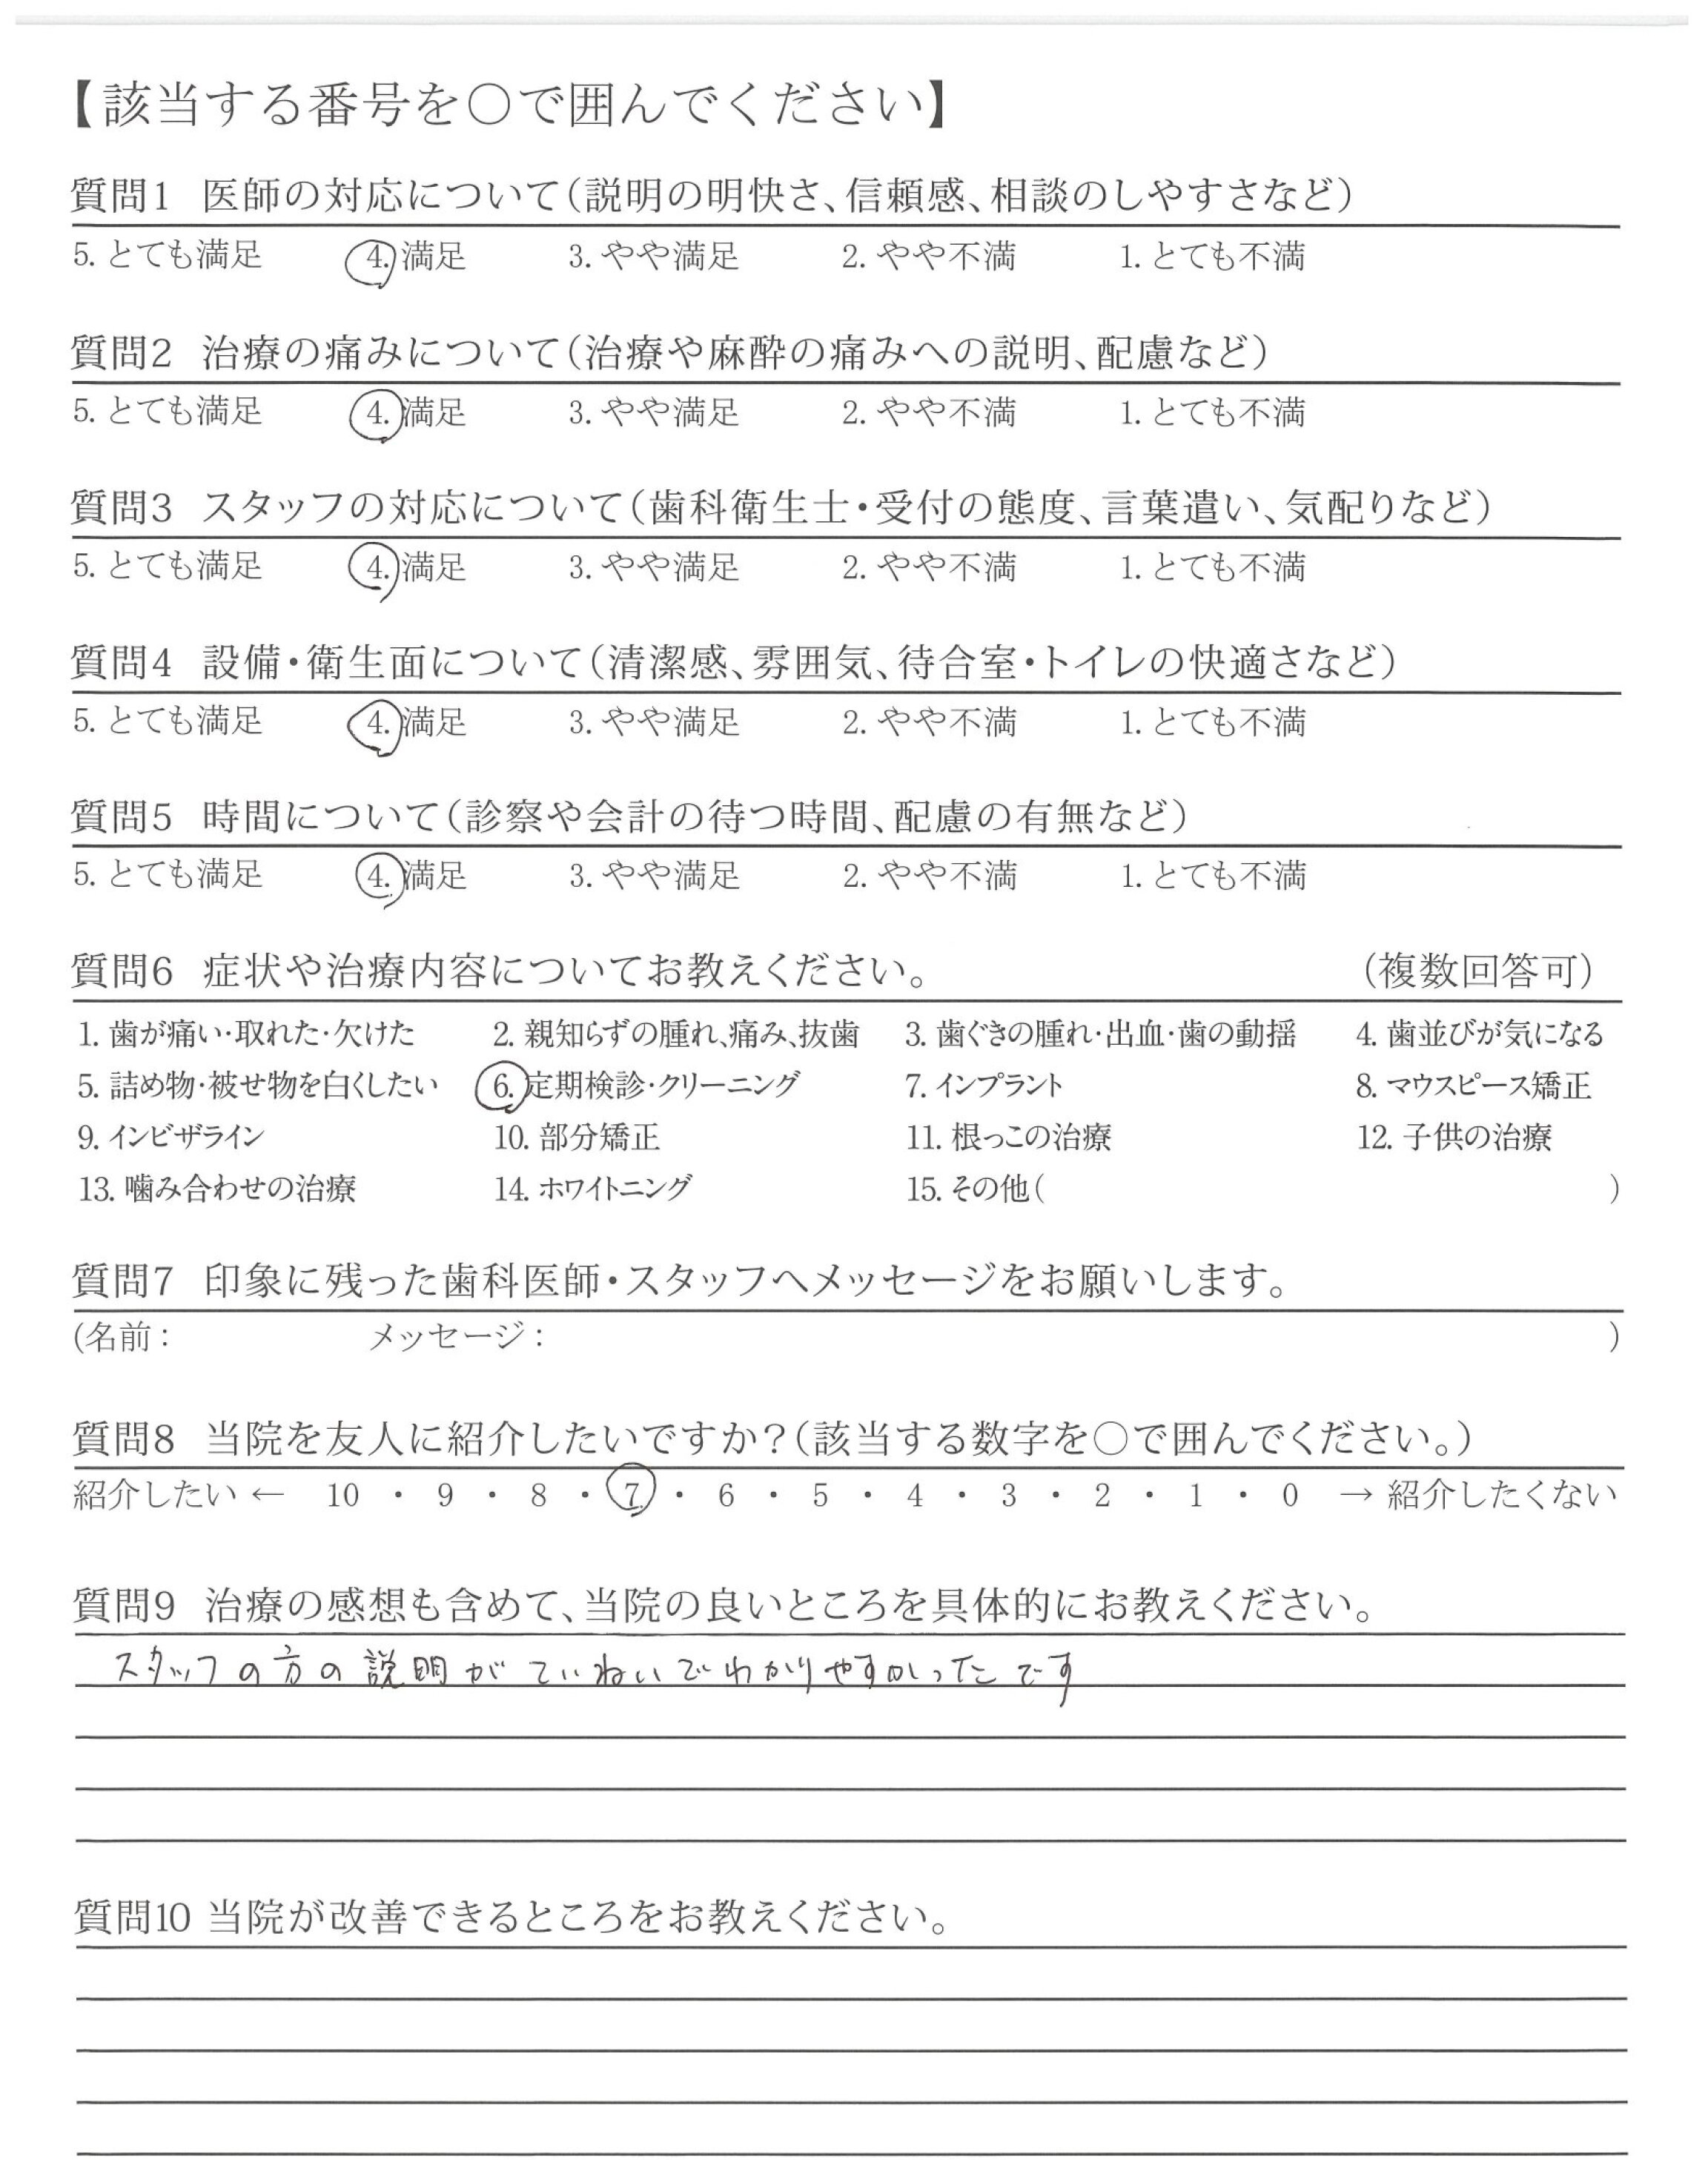 【該当する番号を○で囲んでください】
質問1 医師の対応について(説明の明快さ、信頼感、相談のしやすさなど)
5. とても満足 4. 満足 3. やや満足 2. やや不満 1. とても不満
質問2 治療の痛みについて(治療や麻酔の痛みへの説明、配慮など)
5. とても満足 4. 満足 3. やや満足 2. やや不満 1. とても不満
質問3 スタッフの対応について(歯科衛生士・受付の態度、言葉遣い、気配りなど)
5. とても満足 4. 満足 3. やや満足 2. やや不満 1. とても不満
質問4 設備・衛生面について(清潔感、雰囲気、待合室・トイレの快適さなど)
5. とても満足 4. 満足 3. やや満足 2. やや不満 1. とても不満
質問5 時間について(診察や会計の待つ時間、配慮の有無など)
5. とても満足 4. 満足 3. やや満足 2. やや不満 1. とても不満
質問6 症状や治療内容についてお教えください。 (複数回答可)
1. 歯が痛い・取れた・欠けた 2. 親知らずの腫れ、痛み、抜歯 3. 歯ぐきの腫れ・出血・歯の動揺 4. 歯並びが気になる
5. 詰め物・被せ物を白くしたい 6. 定期検診・クリーニング 7. インプラント 8. マウスピース矯正
9. インビザライン 10. 部分矯正 11. 根っこの治療 12. 子供の治療
13. 噛み合わせの治療 14. ホワイトニング 15. その他( )
質問7 印象に残った歯科医師・スタッフへメッセージをお願いします。
(名前： メッセージ： )
質問8 当院を友人に紹介したいですか？(該当する数字を○で囲んでください。)
紹介したい ← 10 ・ 9 ・ 8 ・ 7 ・ 6 ・ 5 ・ 4 ・ 3 ・ 2 ・ 1 ・ 0 → 紹介したくない
質問9 治療の感想も含めて、当院の良いところを具体的にお教えください。
スタッフの方の説明がていねいでわかりやすかったです
質問10 当院が改善できるところをお教えください。